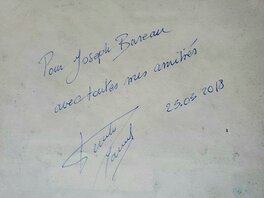 Pour Joseph Bareau
avec toutes mes amitiés
25.05 2018